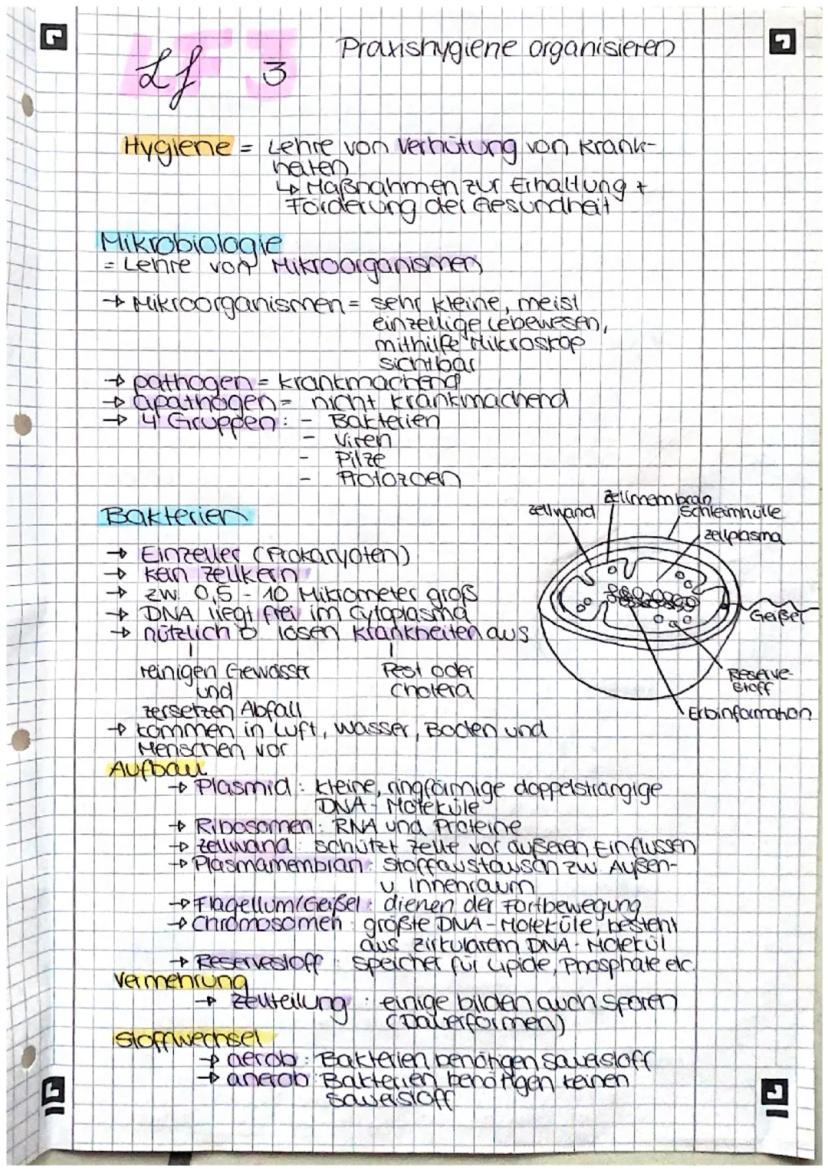 Lf 3
Praxishygiene organisieren
Hygiene = Lehre von Verhütung von Krank-
heiten
↳ Maßnahmen zur Erhaltung +
Förderung der Gesundheit
Mikrobiologie
= Lehre von Mikroorganismen
→ Mikroorganismen = sehr kleine, meist
einzellige Lebewesen,
mithilfe Mikroskop
sichtbar
→ pathogen = krankmachend
→ apathogen = nicht krankmachend
→ 4 Gruppen: - Bakterien
- Viren
- Pilze
- Protozoen
Bakterien
→ Einzeller (Prokaryoten)
→ kein Zellkern
→ zw. 0,5 - 10 Mikrometer groß
→ DNA liegt frei im Cytoplasma
→ nützlich o lösen Krankheiten aus
reinigen Gewässer
und
zersetzen Abfall
Pest oder
Cholera
→ kommen in Luft, Wasser, Boden und
Menschen vor
Zellwand
Zellmembran
Schleimhülle
Zellplasma
Geißel
Reserve-
stoff
Erbinformation
Aufbau
→ Plasmid: kleine, ringförmige doppelsträngige
DNA-Moleküle
→ Ribosomen: RNA und Proteine
→ Zellwand: schützt Zelle vor äußeren Einflüssen
→ Plasmamembran: Stoffaustausch zw Außen-
u Innenraum
→ Flagellum/Geißel: dienen der Fortbewegung
→ Chromosomen: größte DNA-Moleküle, besteht
aus zirkulärem DNA-Molekül
→ Reservestoff: Speicher für Lipide, Phosphate etc.
Vermehrung
→ Zellteilung: einige bilden auch Sporen
(Dauerformen)
Stoffwechsel
→ aerob: Bakterien benötigen Sauerstoff
→ anerob: Bakterien benötigen keinen
Sauerstoff